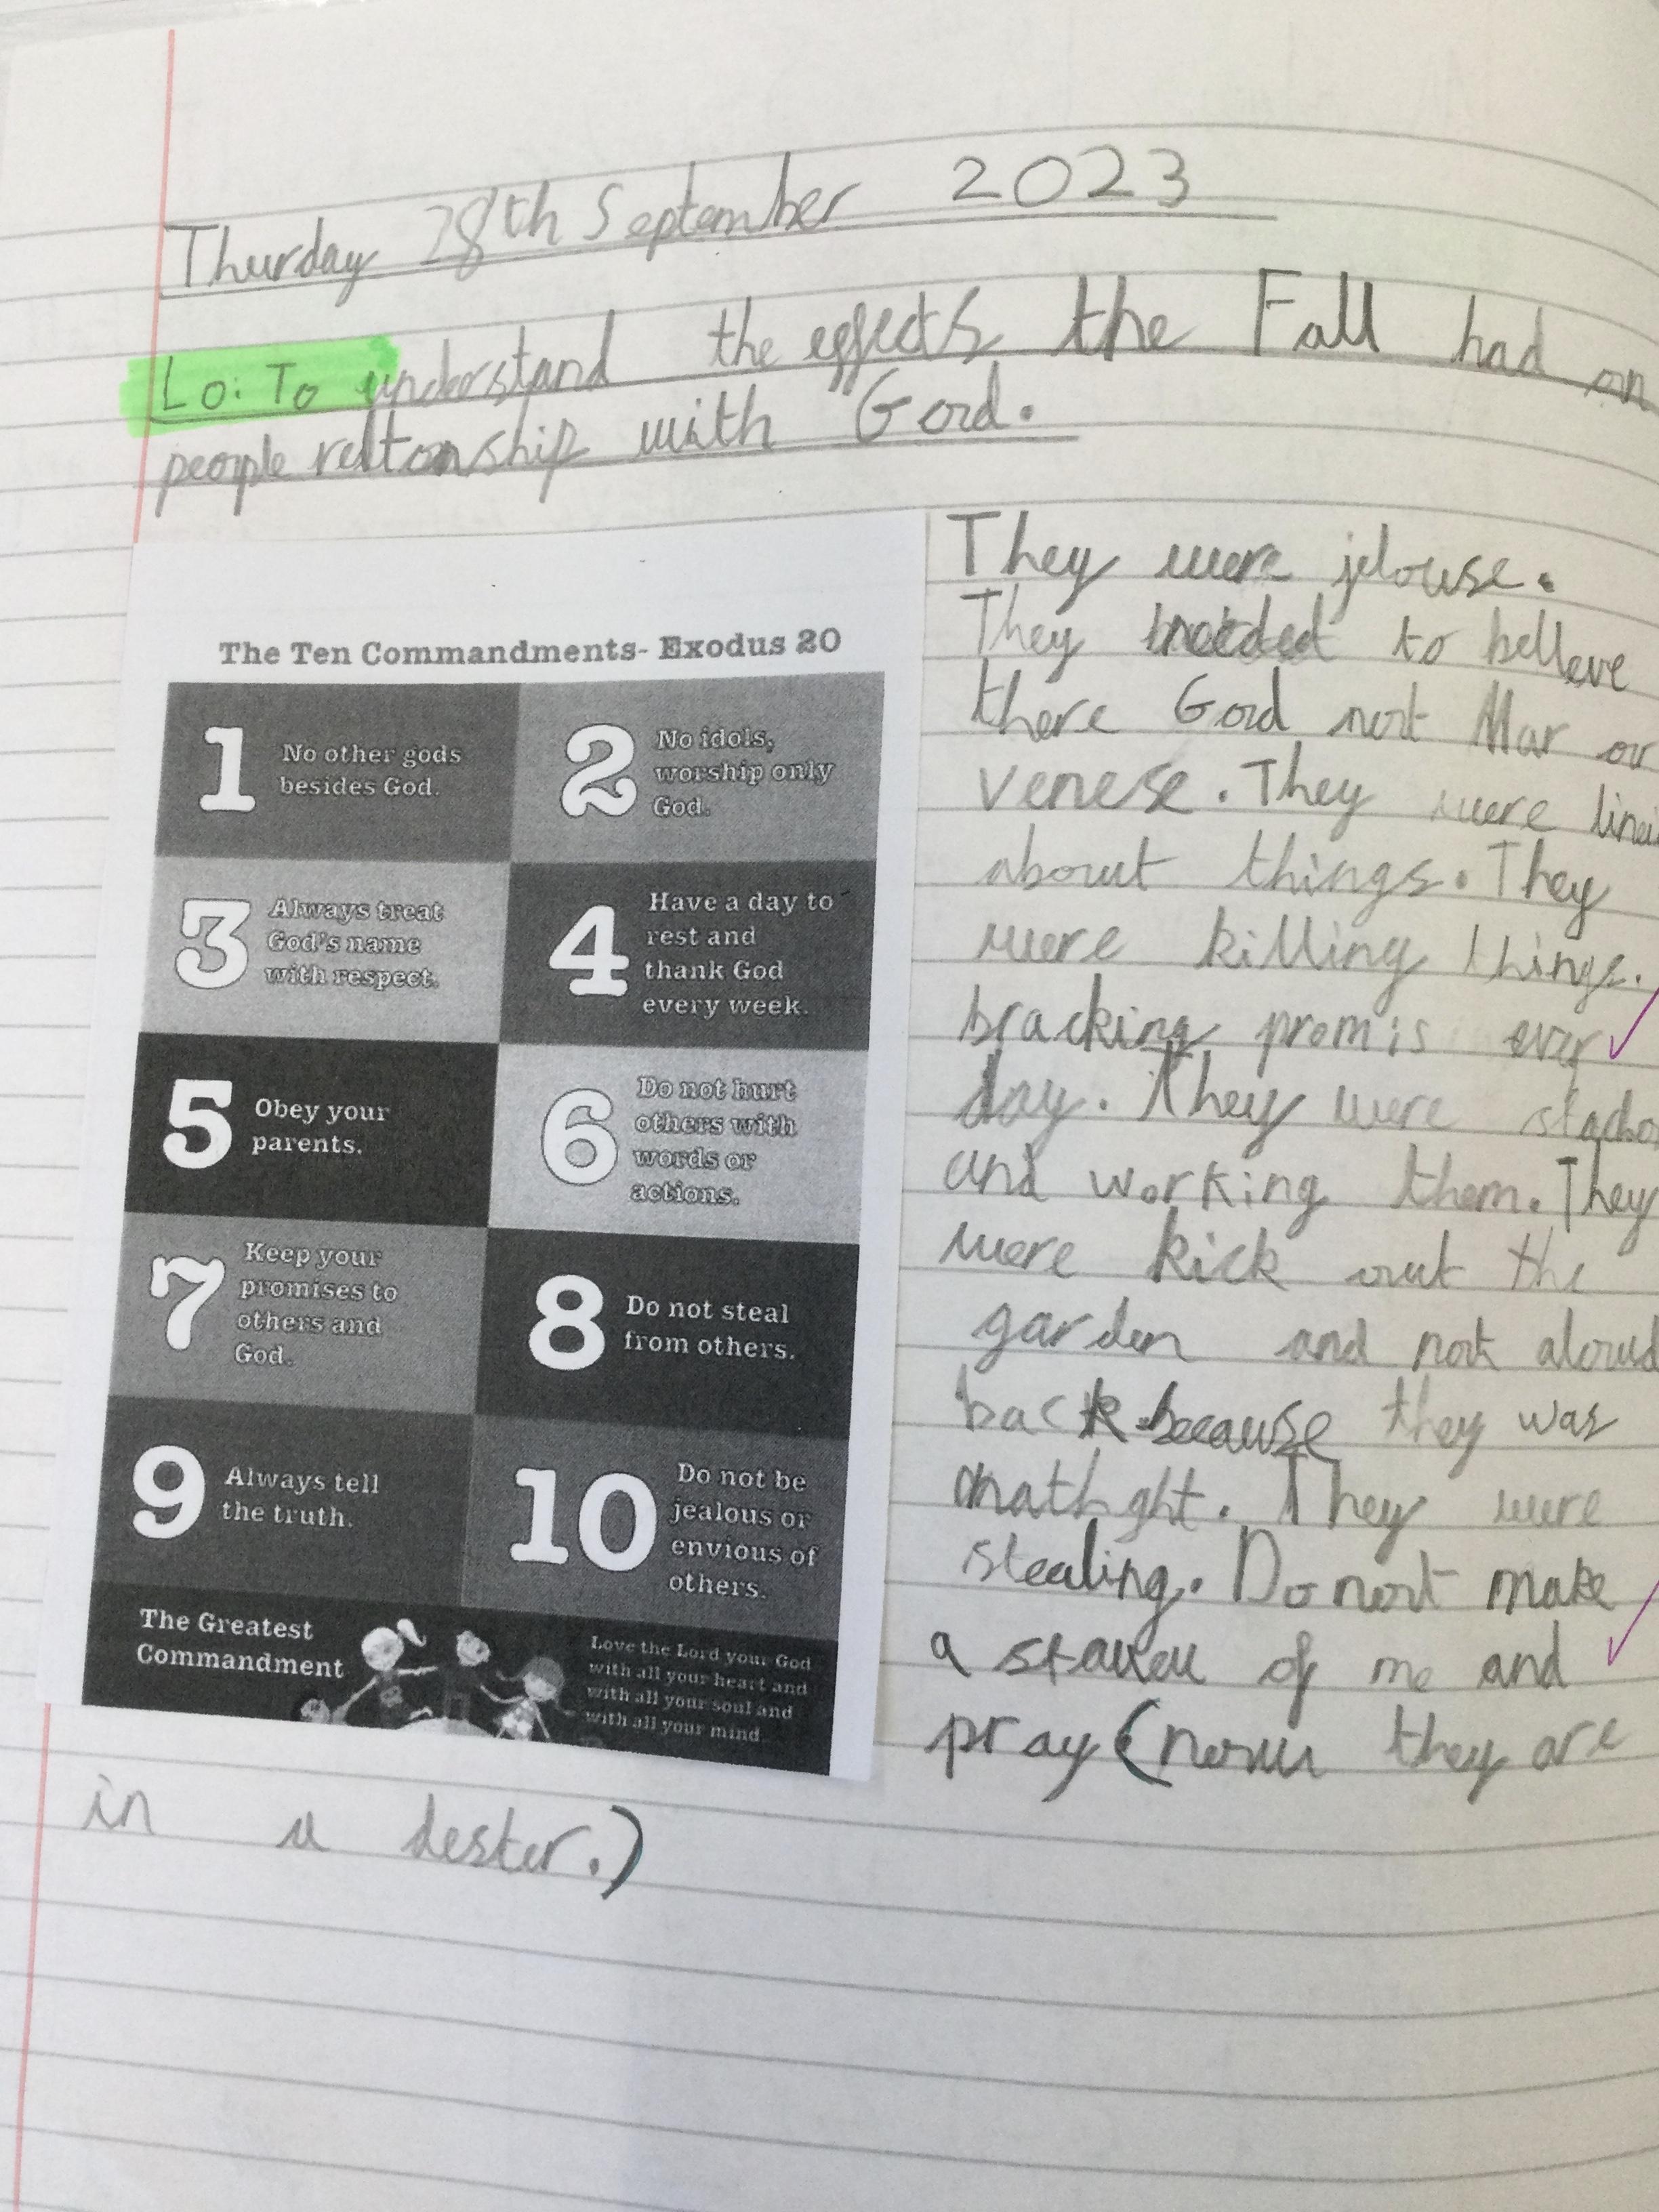 Thurday 28th September 2023
Lo: To understand the effects the Fall had on
people reltonship with God.
The Ten Commandments- Exodus 20
1 No other gods
besides God.
2 No idols,
worship only
God.
3 Always treat
God's name
with respect.
4 Have a day to
rest and
thank God
every week.
5 Obey your
parents.
6 Do not hurt
others with
words or
actions.
7 Keep your
promises to
others and
God.
8 Do not steal
from others.
9 Always tell
the truth.
10 Do not be
jealous or
envious of
others.
The Greatest
Commandment
Love the Lord your God
with all your heart and
with all your soul and
with all your mind
They were jelouse.
They needed to belleve
there God not Mar or
venese. They were
about things. They
were killing things.
bracking promis evry
day. They were
and working them. They
were kick out the
garden and not aloud
back because they was
They were
stealing. Do not make
a of me and
pray (now they are
in a dester.)